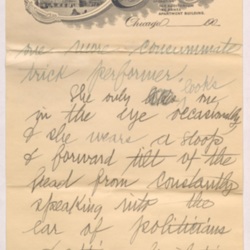 Chicago, 190
one more consummate
trick performer.
She only looks me
in the eye occasionally
& she wears a stoop
& forward tilt of the
head from constantly
speaking into the
ear of politicians